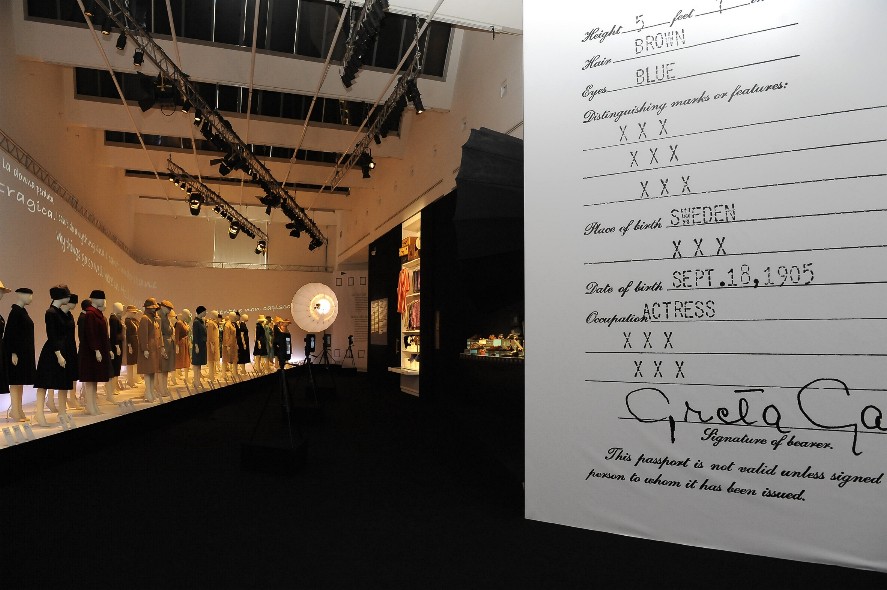 Height 5 feet 7 in
Hair BROWN
Eyes BLUE
Distinguishing marks or features:
X X X
X X X
X X X
Place of birth SWEDEN
X X X
Date of birth SEPT.18,1905
Occupation ACTRESS
X X X
X X X
Greta Ga
Signature of bearer.
This passport is not valid unless signed
person to whom it has been issued.
la donna
tragica